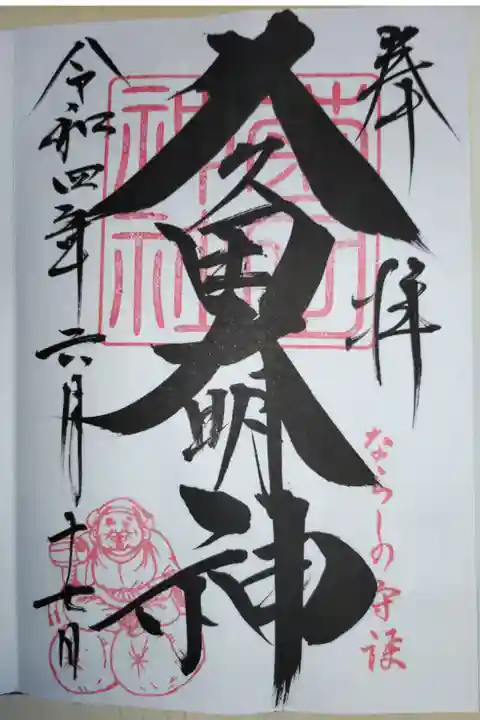 奉拝
久久田大明神
ならしの守護
令和四年六月十七日